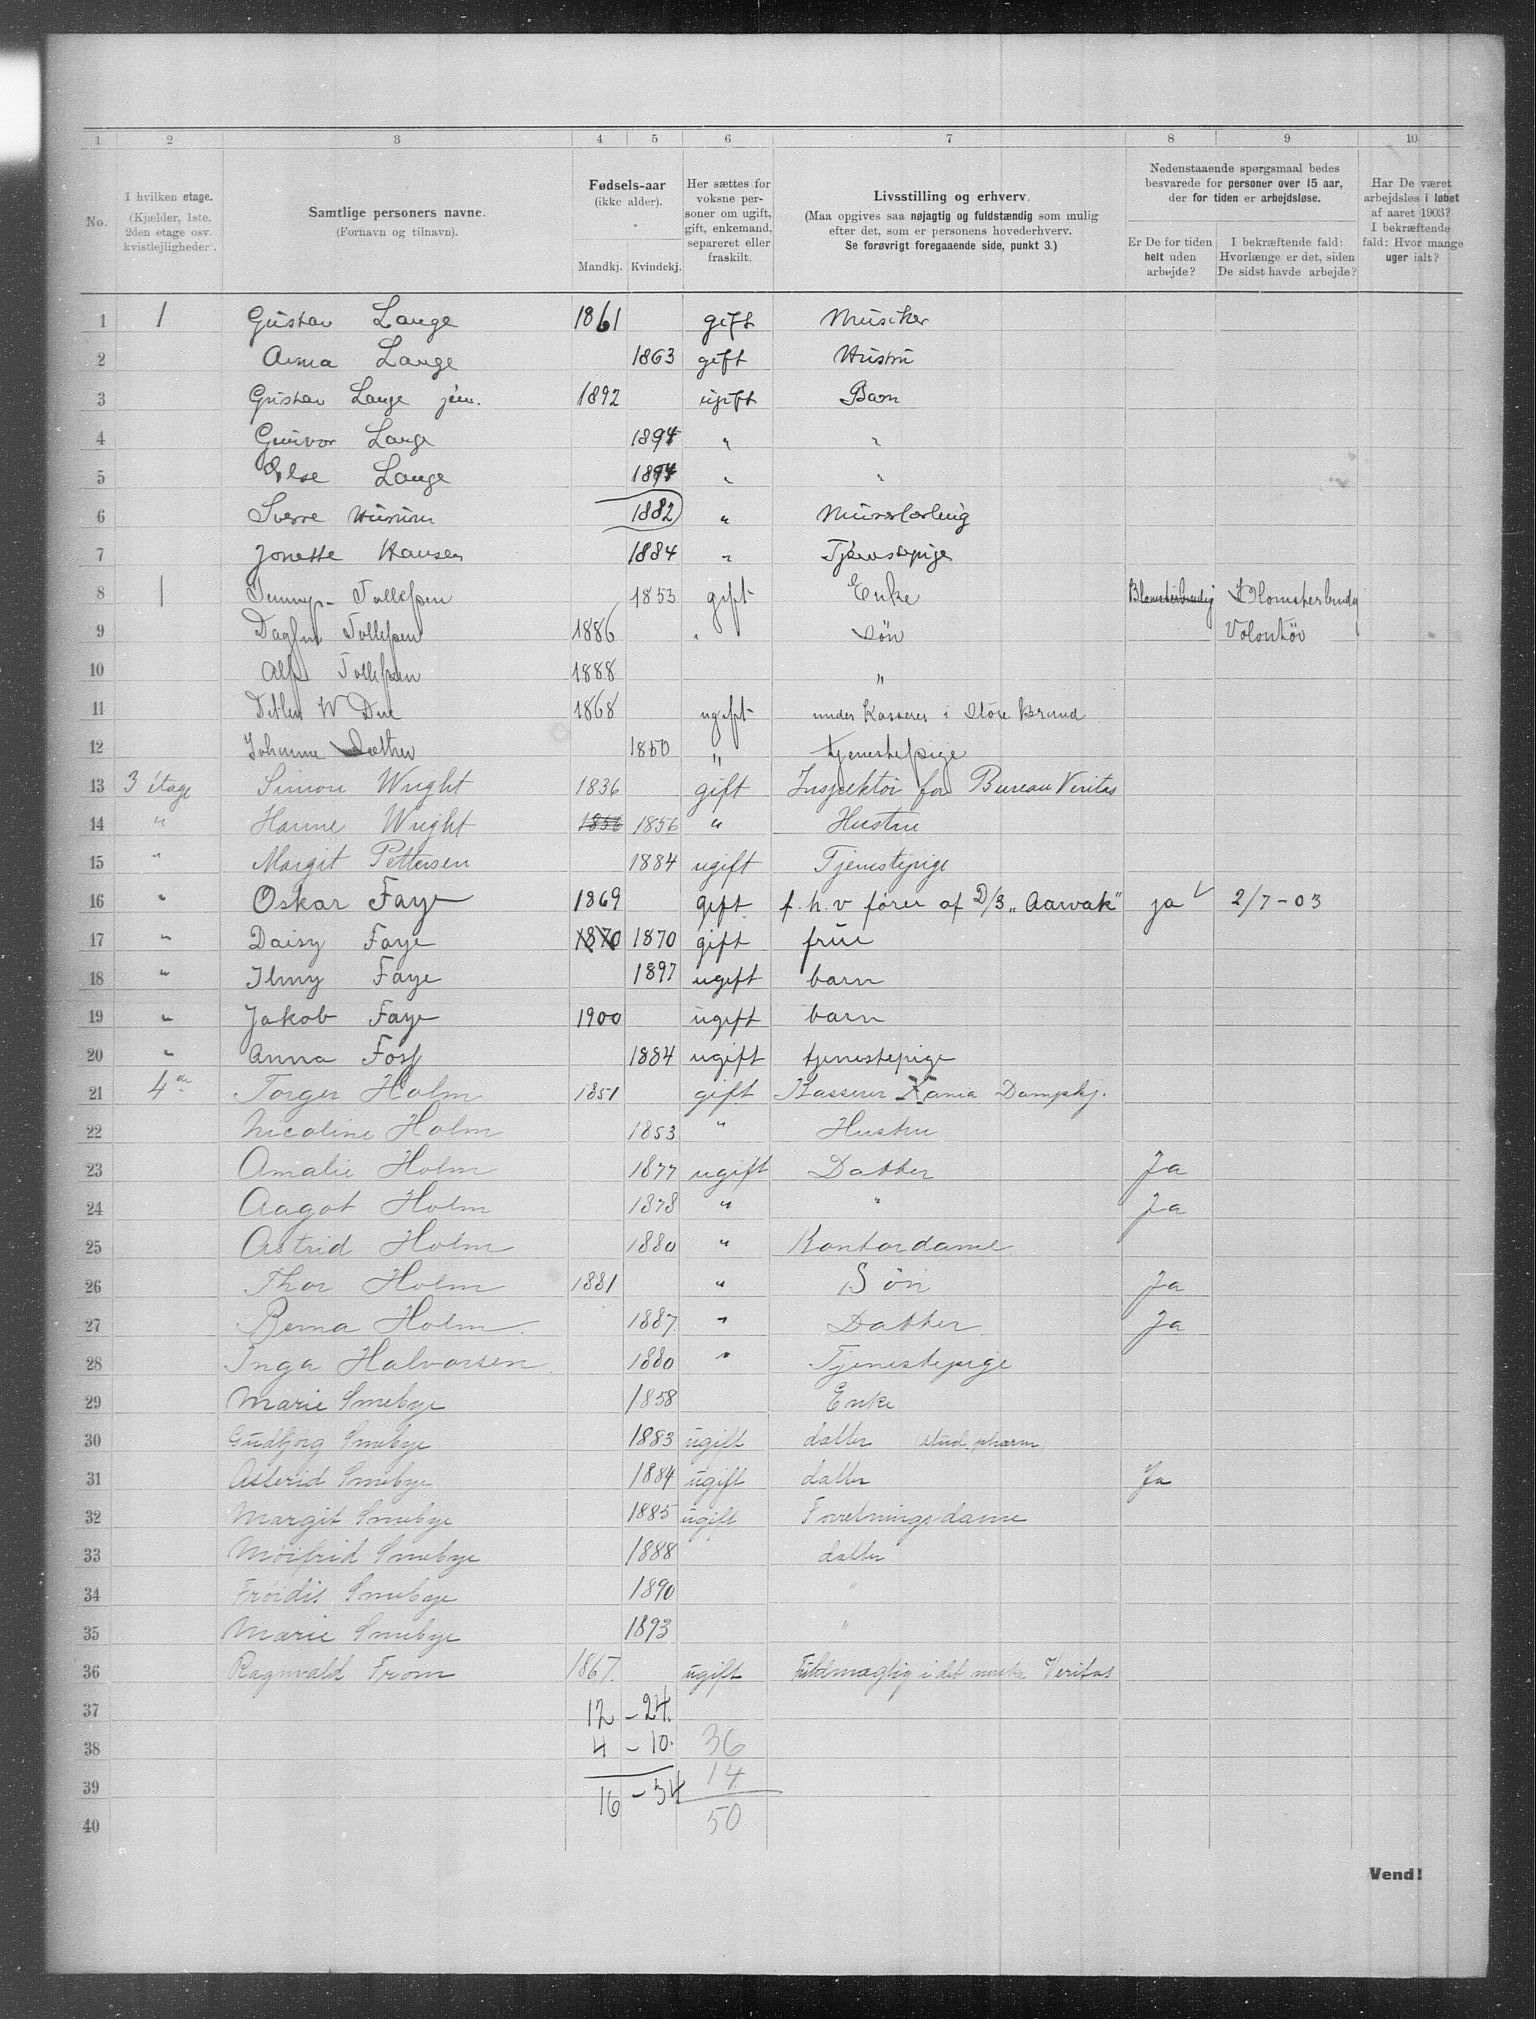 1 2 3 4 5 6 7 8 9 10
No.
I hvilken etage. (Kjælder, 1ste, 2den etage osv. kvistlejligheder).
Samtlige personers navne. (Fornavn og tilnavn).
Fødsels-aar (ikke alder). Mandkj. Kvindekj.
Her sættes for voksne personer om ugift, gift, enkemand, separeret eller fraskilt.
Livsstilling og erhverv. (Maa opgives saa nøjagtig og fuldstændig som mulig efter det, som er personens hovederhverv. Se forøvrigt foregaaende side, punkt 3.)
Nedenstaaende spørgsmaal bedes besvarede for personer over 15 aar, der for tiden er arbejdsløse.
Er De for tiden helt uden arbejde?
I bekræftende fald: Hvorlænge er det, siden De sidst havde arbejde?
Har De været arbejdsløs i løbet af aaret 1903? I bekræftende fald: Hvor mange uger ialt?
1 1 Gustav Lange 1861 gift Musiker
2 Anna Lange 1863 gift Hustru
3 Gustav Lange jun. 1892 ugift Barn
4 Gunvor Lange 1894 " "
5 Else Lange 1894 " "
6 Sverre 1882 " Murerlærling
7 Jonette Hansen 1884 " Tjenestepige
8 1 Jenny Tollefsen 1853 gift Enke Blomsterbindig Blomsterbindig
9 Dagfin Tollefsen 1886 " Søn Volontør
10 Alf Tollefsen 1888 "
11 Ditlev W Due 1868 ugift under Kasserer i Store Brand
12 Johanne 1850 " tjenestepige
13 3 étage Simon Wright 1836 gift Inspektør for Bureau Veritas
14 " Hanne Wright 1856 1856 " Hustru
15 " Margit Pettersen 1884 ugift Tjenestepige
16 " Oskar Faye 1869 gift f. h. v fører af D/S „Aarvak" ja 2/7-03
17 " Daisy Faye 1870 1870 gift frue
18 " Ilmy Faye 1897 ugift barn
19 " Jakob Faye 1900 ugift barn
20 " Anna Foss 1884 ugift tjenestepige
21 4 Torger Holm 1851 gift Kasserer Xania Dampskj.
22 Nicoline Holm 1853 " Hustru
23 Amalie Holm 1877 ugift Datter Ja
24 Aagot Holm 1878 " " Ja
25 Astrid Holm 1880 " Kontordame
26 Thor Holm 1881 " Søn Ja
27 Berna Holm 1887 " Datter Ja
28 Inga Halvorsen 1880 " Tjenestepige
29 Marie Smebye 1858 Enke
30 Gudbjørg Smebye 1883 ugift datter stud. pharm
31 Asterid Smebye 1884 ugift datter Ja
32 Margit Smebye 1885 ugift Forretningsdame
33 Møifrid Smebye 1888 datter
34 Frøidis Smebye 1890 "
35 Marie Smebye 1893 "
36 Ragnvald From 1867 ugift Fuldmægtig i det norske Veritas
37 12 - 24.
38 4 - 10. 36
39 16 - 34 14
40 50
Vend!